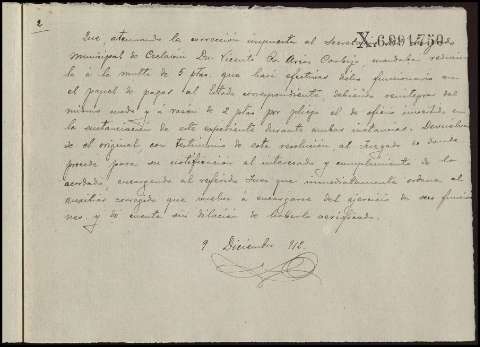 2
X 6991750
Que atenuando la corrección impuesta al Secretario del Juzgado
municipal de Don Vicente de Arias mandaba reducir
la á la multa de 5 ptas, que hará efectivas dicho funcionario en
el papel de pagos al Estado correspondiente, debiendo reintegrar del
mismo modo y á razón de 2 ptas por pliego el de oficio invertido en
la sustanciación de este expediente durante ambas instancias. Devuélva
se el original con testimonio de esta resolución al Juzgado de donde
procede para su notificación al interesado y cumplimiento de lo
acordado, encargando al referido Juez que inmediatamente ordene al
auxiliar corregido que vuelva a encargarse del ejercicio de sus funcio
nes y dé cuenta sin dilación de haberlo verificado.
9 Diciembre 912.